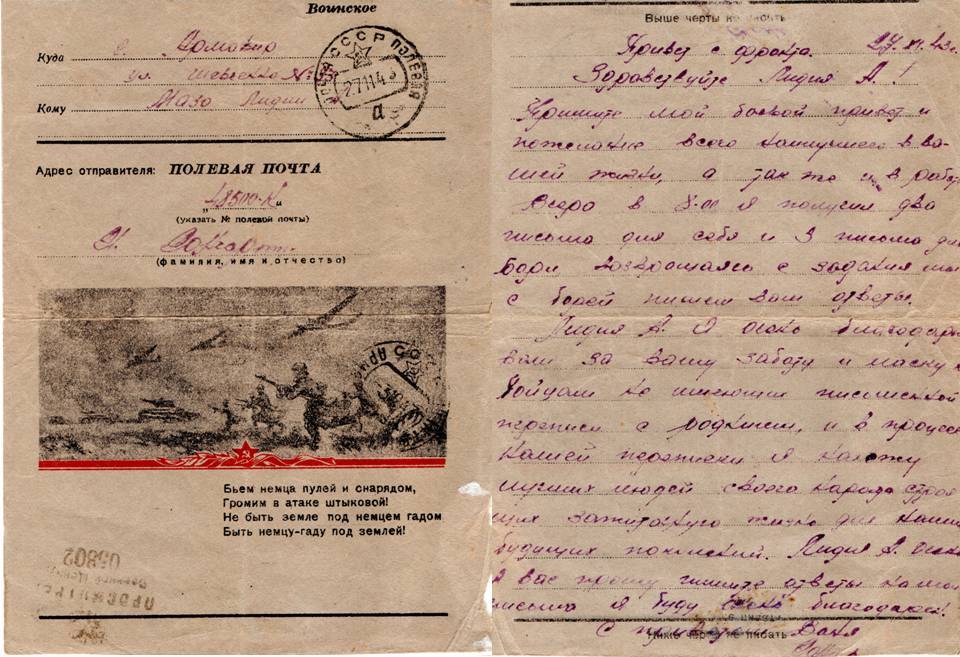 Воинское
Куда с.
ул. Шевченко №
Кому Мазо Лидии
СССР ПОЛЕВАЯ
27 11 43
а
Адрес отправителя: ПОЛЕВАЯ ПОЧТА
„48500-К“
(указать № полевой почты)
(фамилия, имя и отчество)
Бьем немца пулей и снарядом,
Громим в атаке штыковой!
Не быть земле под немцем гадом
Быть немцу-гаду под землей!
05802
Выше черты не писать
Привет с фронта. 27.XI.43г.
Здравствуйте Лидия А.!
Примите мой боевой привет и
пожелание всего наилучшего в ва-
шей жизни, а так же и в работе
в 8.00 я получил два
письма для себя и 3 письма для
возвращаясь с задания мы
с Борей пишем вам ответы.
Лидия А. я очень благодарен
вам за вашу заботу и ласку к
бойцам не имеющим письменной
с родными, и в процессе
нашей переписки я нахожу
лучших людей своего народа строя
щих жизнь для наших
будущих Лидия А. очень
я вас прошу пишите ответы на мои
письма я буду очень благодарен!
С приветом Ваня
Ниже черты не писать